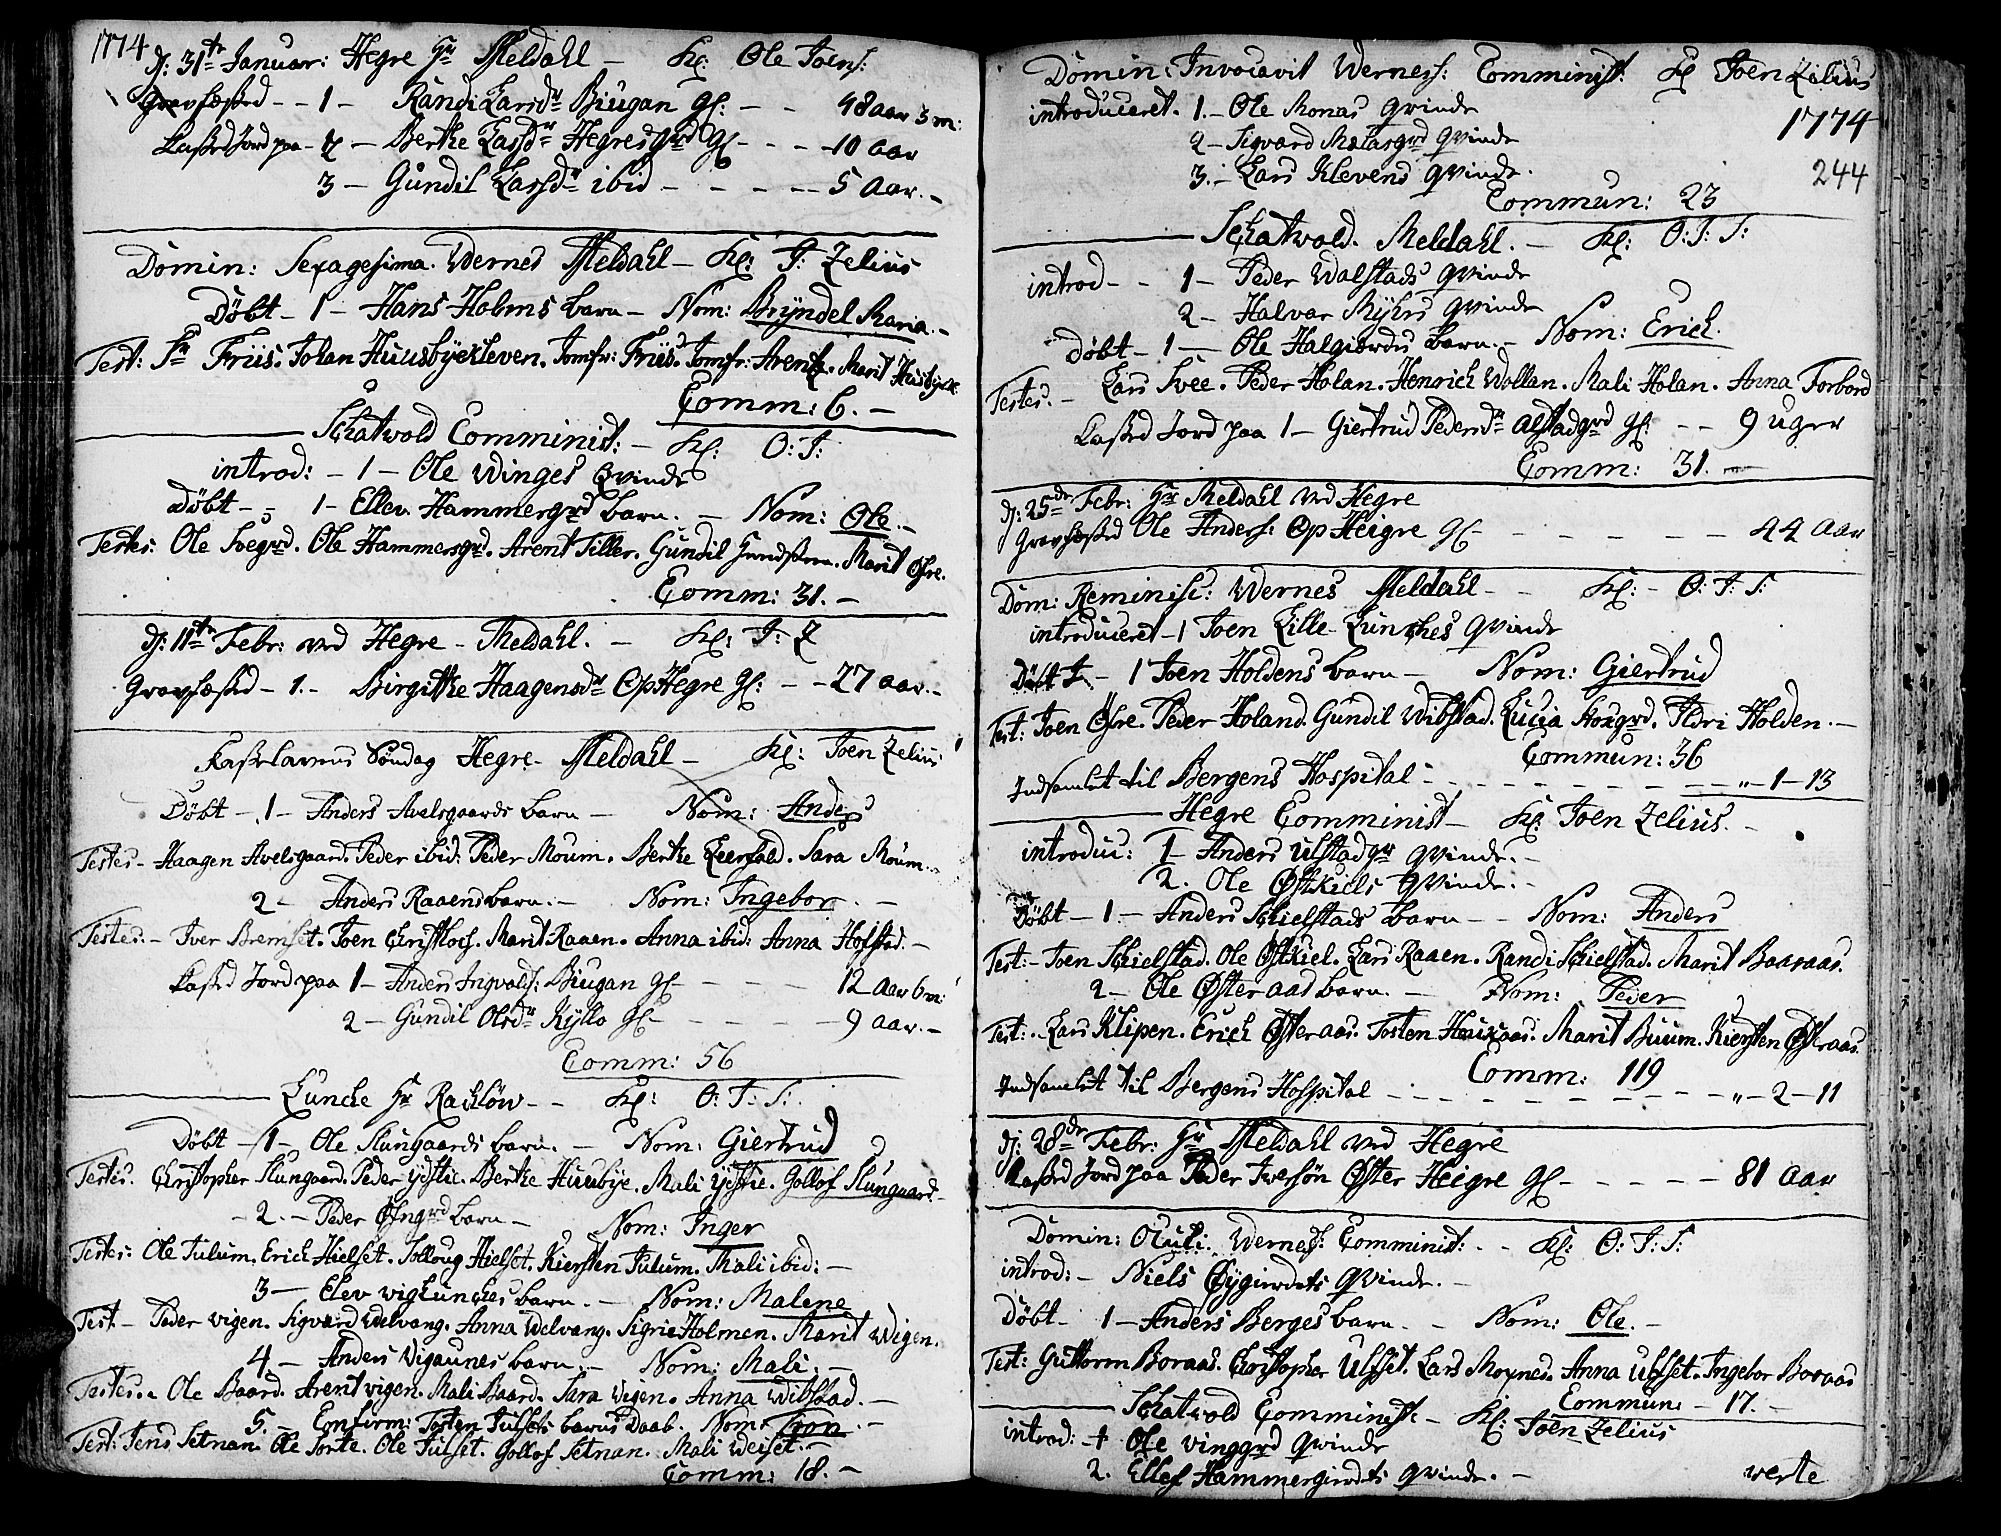 1774
d: 31te Januar: Hegre Hr Meldahl – Kl: Ole Joens:
Gravfæsted - - 1 – Randi Larsdr Biugan gl: - - 48 aar 3 m:
Kasted Jord paa - 2 – Berthe Larsdr Hegresgrd gl - - - 10 aar
3 – Gundil Larsdr ibid - - - - 5 Aar. –
Domin: Sexagesima. Wernes Meldahl – Kl: J: Zelius
Døbt – 1 – Hans Holms barn – Nom: Bryndel Maria. –
Test: Sr Friis. Johan Huusbyekleven. Jomfr: Friis. Jomfr: Arentz. Marit Husbyekl
Comm: 6. –
Schatwold Comminist: – Kl: O: J:
introd: – 1 – Ole Winges Qvinde
Døbt - - 1 – Ellev Hammergrd barn. – Nom: Ole. –
Testes: Ole Svegrd. Ole Hammersgrd. Arent Tiller. Gundil Marit Øfre.
Comm: 31. –
d: 11te Febr: ved Hegre – Meldahl. – Kl: J: Z
Gravfæsted – 1. – Birgithe Haagensdr OpHegre gl: - - 27 aar. –
Fastelavens Søndag Hegre – Meldahl – Kl: Joen Zelius
Døbt – 1 – Anders Avelsgaards barn – Nom: Anders
Testes – Haagen Avelsgaard. Peder ibid: Peder Moum. Berthe Leerfald. Sara Moum. –
2 – Anders Raaens barn. – Nom: Ingebor. –
Testes: – Iver Bremset. Joen Christloch. Marit Raaen. Anna ibid: Anna Hofstad. –
Kasted Jord paa 1 – Anders Ingvalds: Biugan gl – – – – 12 aar 6 m:
2 – Gundil Olsdr Kyllo gl – – – – – 9 aar. –
Comm: 56
Luncke Hr Rachløw - - Kl: O: J: S:
Døbt – 1 – Ole Slungaards barn. – Nom: Giertrud
Testes. Christopher Slungaard. Peder ystie. Berthe Huusbye. Mali ystie. Gollof Slungaard. –
– 2. – Peder Øfngrd barn – Nom: Inger
Testes: Ole Julum. Erich Hielset. Solloug Hielset. Kiersten Julum. Mali ibid: –
3 – Elev vigLunches barn. – Nom: Malene
Test – Peder vigen. Sigvard Welvang. Anna Welvang. Sigrie Holmen. Marit Wigen.
4 – Anders Vigaunes barn. – Nom: Mali. –
Testes. – Ole Baard. Arent vigen. Mali Baard. Sara Vigen. Anna Wibstad. –
5. – Confirm: Tosten Julsets barns Daab. Nom: Tron. –
Test: Jens Setnan. Ole Sorte. Ole Julset. Gollof Setnan. Mali Weiset. –
Comm: 18. –
Domin: Invocavit Werness: Comminist: Kl Joen Zelius
introduceret. 1. – Ole Monas Qvinde
1774
2 – Sigvard Mælasgrd Qvinde
3. – Lars Klevens Qvinde.
244
Commun: 23
Schatwold. Meldahl. – Kl: O: J: S:
introd - - 1 – Peder Walstads Qvinde
2 – Halvar Rykes Qvinde
Døbt – 1 – Ole Halgiærdes barn. – Nom: Erich.
Testes. – Lars Svee. Peder Holan. Henrich Wollan. Mali Holan. Anna Forbord
Kasted Jord paa 1 – Giertrud Pedersdr Alstadgrd gl: - - 9 uger
Comm: 31. –
d: 25de Febr: Hr Meldahl ved Hegre
Gravfæsted Ole Anders: Op Heigre gl – – – – – – 44 Aar
Dom: Reminisc: Wernes Meldahl - - Kl: – O: J: S:
introduceret – 1 Joen Lille-Lunches Qvinde
Døbt – 1 Joen Holdens barn – Nom: Giertrud
Test: Joen Øfre. Peder Holand. Gundil Wibstad. Lucia Moxgrd. Ildri Holden. –
Commun: 36
Indsamlet til Bergens Hospital – – – – – – – – „ – 1 – 13
Hegre Comminist – Kl: Joen Zelius. –
introduc: 1 – Anders Ulstadgr Qvinde. –
2. Ole Østkiels Qvinde. –
Døbt – 1 – Anders Schielstads barn – – Nom: Anders
Test: – Joen Schielstad. Ole Østkiel. Lars Raaen. Randi Schielstad. Marit Baaraas.
2 – Ole Øster aas barn. – Nom: Peder
Test: – Lars Klipen. Erich Østeraas. Tosten Hauraas. Marit Buum. Kiersten Østraas.
Comm: 119
Indsamlet til Bergens Hospital – – – – – – – – „ – 2 – 11
d: 28de Febr: Hr Meldahl ved Hegre
Kasted Jord paa Peder Iversøn Øster Heigre gl – – – – – 81 Aar
Domin: Oculi. Wernes: Comminist: – – Kl: O: J: S:
introd: – Niels Øygiærdets Qvinde. –
Døbt – 1 – Anders Berges barn – – Nom: Ole. –
Test: Guttorm Boraas. Christopher Ulsset. Lars Moxnes. Anna Ulsset. Ingebor Boraas
Commun: – 17. –
Schatwold Comminist: – Kl: Joen Zelius
introd: – 1 Ole vinggrd Qvinde
2. Ellef Hammergiærdets Qvinde. –
verte